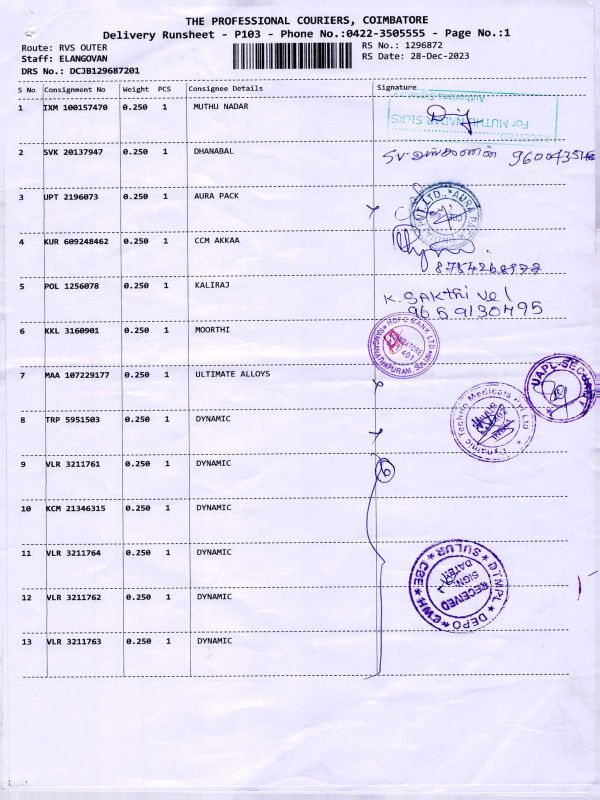 THE PROFESSIONAL COURIERS, COIMBATORE
Delivery Runsheet - P103 - Phone No.:0422-3505555 - Page No.:1
Route: RVS OUTER RS No.: 1296872
Staff: ELANGOVAN RS Date: 28-Dec-2023
DRS No.: DCJB129687201
S No Consignment No Weight PCS Consignee Details Signature
1 IXM 100157470 0.250 1 MUTHU NADAR
RECEIVED
For MUTHU NADAR SILKS
2 SVK 20137947 0.250 1 DHANABAL
3 UPT 2196073 0.250 1 AURA PACK
4 KUR 609248462 0.250 1 CCM AKKAA
5 POL 1256078 0.250 1 KALIRAJ K. Sakthi vel
9659130495
6 KKL 3160901 0.250 1 MOORTHI
HDFC BANK LTD
RANGANATHAPURAM, SULUR
7 MAA 107229177 0.250 1 ULTIMATE ALLOYS
UAPL-SECURITY
8 TRP 5951503 0.250 1 DYNAMIC
Dynamic Techno Medicals Pvt Ltd
9 VLR 3211761 0.250 1 DYNAMIC
6
10 KCM 21346315 0.250 1 DYNAMIC
11 VLR 3211764 0.250 1 DYNAMIC
DTMPL * DEPO * CWH * CBE * SULUR
RECEIVED
SIGN
DATE
12 VLR 3211762 0.250 1 DYNAMIC
13 VLR 3211763 0.250 1 DYNAMIC